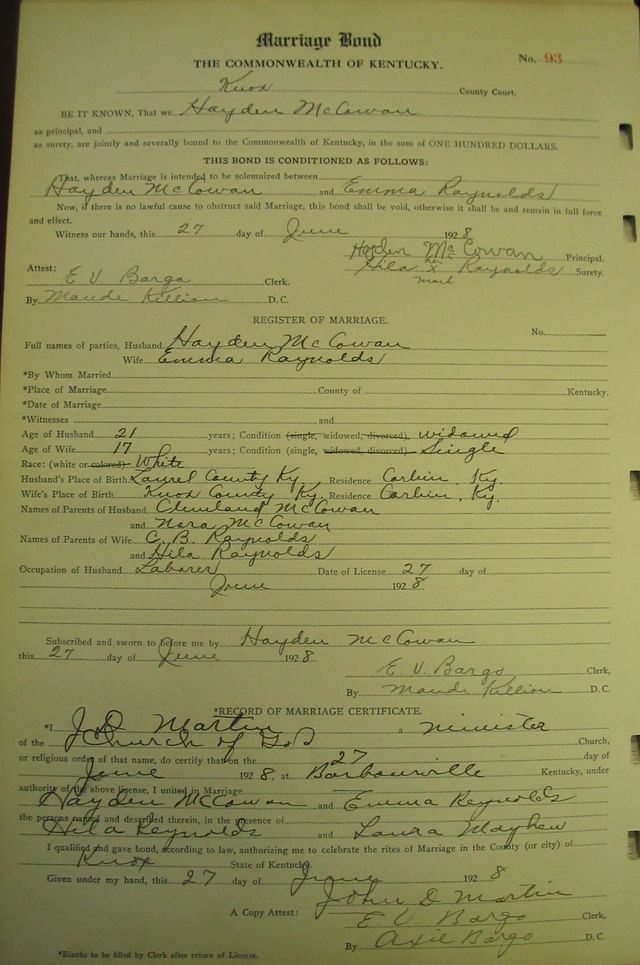 Marriage Bond
THE COMMONWEALTH OF KENTUCKY. No. 93
Knox County Court.
BE IT KNOWN, That we Hayden McCowan
as principal, and
as surety, are jointly and severally bound to the Commonwealth of Kentucky, in the sum of ONE HUNDRED DOLLARS.
THIS BOND IS CONDITIONED AS FOLLOWS:
That, whereas Marriage is intended to be solemnized between
Hayden McCowan and Emma Raynolds
Now, if there is no lawful cause to obstruct said Marriage, this bond shall be void, otherwise it shall be and remain in full force
and effect.
Witness our hands, this 27 day of June 1928
Hayden McCowan Principal.
Attest: Hila her x mark Raynolds Surety.
E. V. Bargo Clerk.
By Maude Killion D. C.
REGISTER OF MARRIAGE.
No.
Full names of parties, Husband Hayden McCowan
Wife Emma Raynolds
*By Whom Married
*Place of Marriage County of Kentucky.
*Date of Marriage
*Witnesses and
Age of Husband 21 years; Condition (single, widowed, divorced) widowed
Age of Wife 17 years; Condition (single, widowed, divorced) Single
Race: (white or colored) White
Husband's Place of Birth Laurel County Ky. Residence Corbin, Ky.
Wife's Place of Birth Knox County Ky. Residence Corbin, Ky.
Names of Parents of Husband Cleveland McCowan
and Nora McCowan
Names of Parents of Wife C. B. Raynolds
and Hila Raynolds
Occupation of Husband Laborer Date of License 27 day of
June 1928
Subscribed and sworn to before me by Hayden McCowan
this 27 day of June 1928
E. V. Bargo Clerk,
By Maude Killion D. C.
*RECORD OF MARRIAGE CERTIFICATE.
*I J. D. Martin a minister
of the Church of God Church,
or religious order of that name, do certify that on the 27 day of
June 1928. at Barbourville Kentucky, under
authority of the above license, I united in Marriage
Hayden McCowan and Emma Reynolds
the persons named and described therein, in the presence of
Hila Reynolds and Laura Mayhew
I qualified and gave bond, according to law, authorizing me to celebrate the rites of Marriage in the County (or city) of
Knox State of Kentucky.
Given under my hand, this 27 day of June 1928
John D Martin
A Copy Attest: E. V. Bargo Clerk,
By Axie Bargo D. C.
*Blanks to be filled by Clerk after return of License.